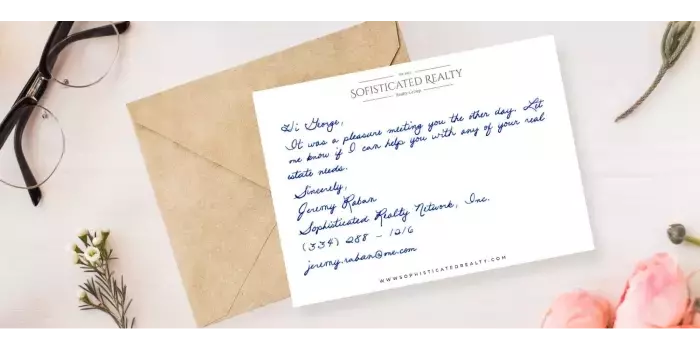 SOFISTICATED REALTY
Hi George,
It was a pleasure meeting you the other day. Let
me know if I can help you with any of your real
estate needs.
Sincerely,
Jeremy Raban
Sophisticated Realty Network, Inc.
(334) 288 - 1216
jeremy.raban@me.com
WWW.SOPHISTICATEDREALTY.COM